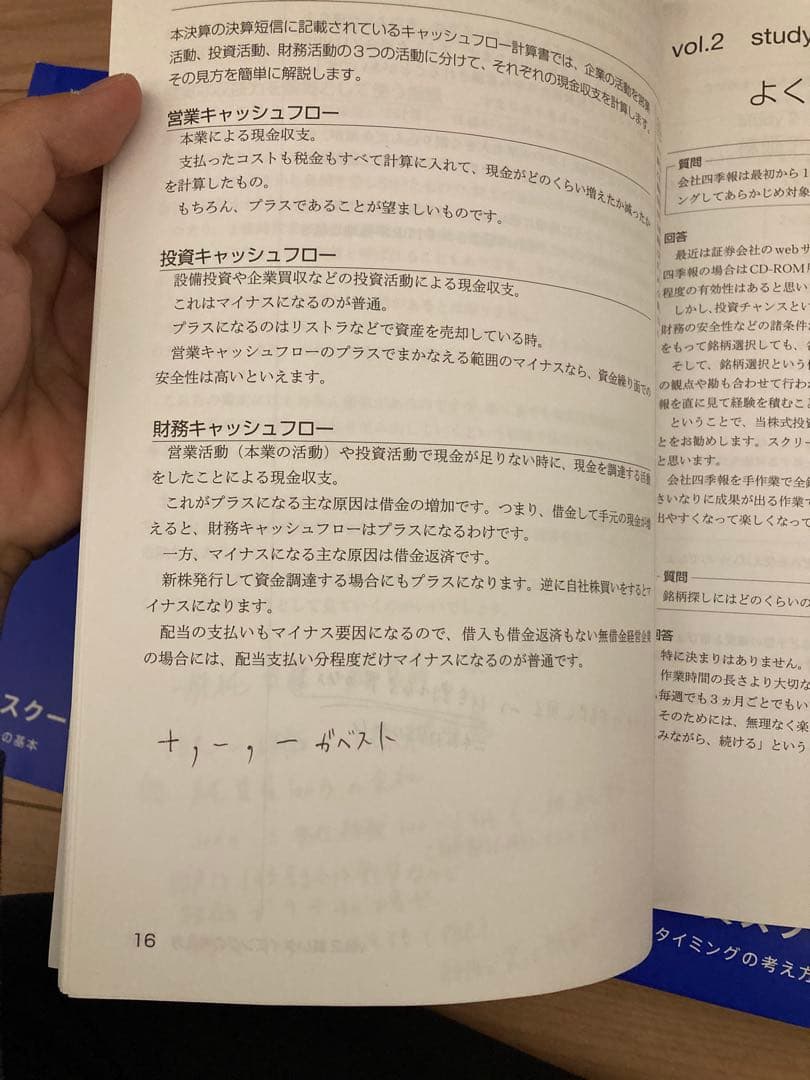 本決算の決算短信に記載されているキャッシュフロー計算書では、企業の活動を営業
活動、投資活動、財務活動の3つの活動に分けて、それぞれの現金収支を計算します。
その見方を簡単に解説します。
営業キャッシュフロー
本業による現金収支。
支払ったコストも税金もすべて計算に入れて、現金がどのくらい増えたか減ったか
を計算したもの。
もちろん、プラスであることが望ましいものです。
投資キャッシュフロー
設備投資や企業買収などの投資活動による現金収支。
これはマイナスになるのが普通。
プラスになるのはリストラなどで資産を売却している時。
営業キャッシュフローのプラスでまかなえる範囲のマイナスなら、資金繰り面での
安全性は高いといえます。
財務キャッシュフロー
営業活動（本業の活動）や投資活動で現金が足りない時に、現金を調達する活動
をしたことによる現金収支。
これがプラスになる主な原因は借金の増加です。つまり、借金して手元の現金が増
えると、財務キャッシュフローはプラスになるわけです。
一方、マイナスになる主な原因は借金返済です。
新株発行して資金調達する場合にもプラスになります。逆に自社株買いをするとマ
イナスになります。
配当の支払いもマイナス要因になるので、借入も借金返済もない無借金経営企業
の場合には、配当支払い分程度だけマイナスになるのが普通です。
＋, －, － がベスト
16
vol.2 study
よく
質問
会社四季報は最初から1
ングしてあらかじめ対象
回答
最近は証券会社のwebサ
四季報の場合はCD-ROM
程度の有効性はあると思い
しかし、投資チャンスとい
財務の安全性などの諸条件
をもって銘柄選択しても、
そして、銘柄選択という
の観点や勘も合わせて行わ
報を直に見て経験を積むこ
ということで、当株式投資
とをお勧めします。スクリー
と思います。
会社四季報を手作業で全
さいなりに成果が出る作業で
出やすくなって楽しくなって
質問
銘柄探しにはどのくらいの
回答
特に決まりはありません。
作業時間の長さより大切な
毎週でも3ヵ月ごとでもい
そのためには、無理なく楽
みながら、続ける」という
スクー
の基本
タイミングの考え方